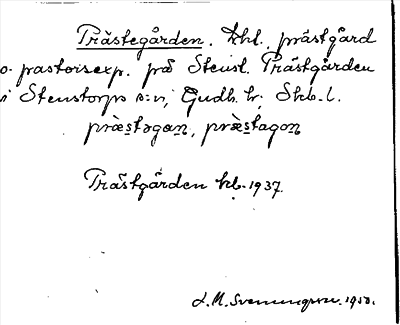 Prästegården. khl. prästgård
o. pastorsexp. på Stenst. Prästgården
i Stenstorps s:n, Gudh. hr, Skb. l.
præstəgan, præstagon
Prästgården kb. 1937.
L. M. Svenungsson. 1950.